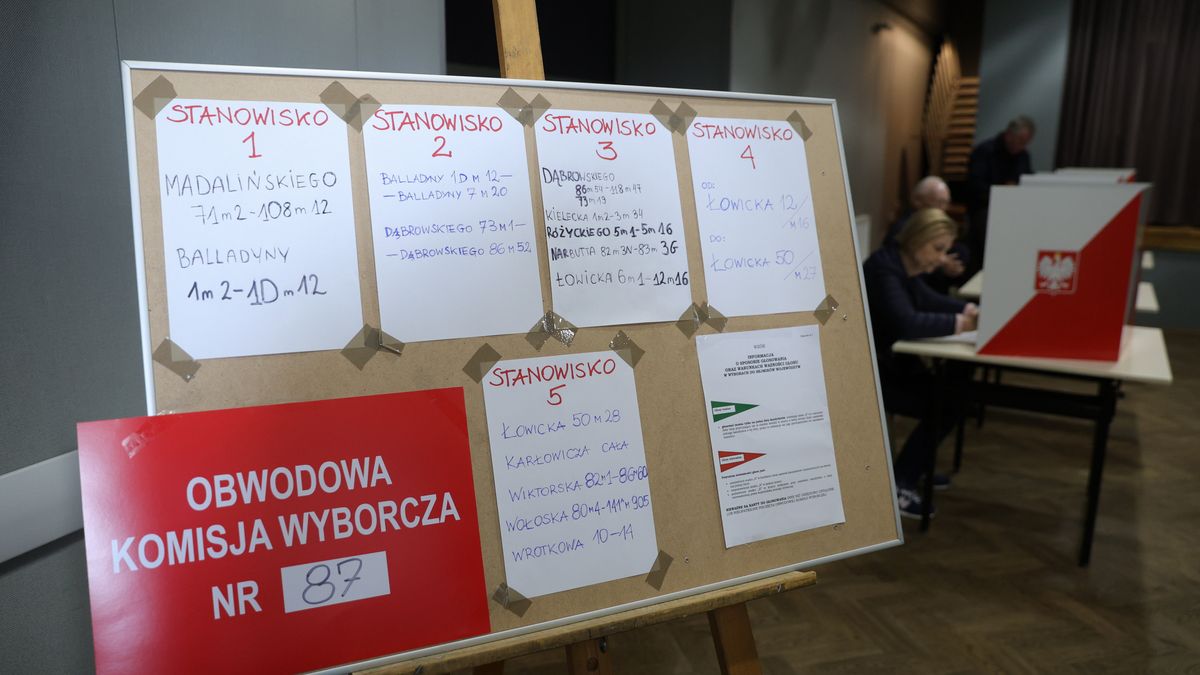 STANOWISKO
1
MADALIŃSKIEGO
71m2-108m12
BALLADYNY
1m2-1Dm12
STANOWISKO
2
BALLADYNY 1Dm12-
-BALLADYNY 7m20
DĄBROWSKIEGO 73m1-
-DĄBROWSKIEGO 86m52
STANOWISKO
3
DĄBROWSKIEGO
86m54-118m47
73m19
KIELECKA 1m2-3m34
RÓŻYCKIEGO 5m1-5m16
NARBUTTA 82m3N-83m3G
ŁOWICKA 6m1-12m16
STANOWISKO
4
OD:
ŁOWICKA 12/m16
DO:
ŁOWICKA 50/m27
STANOWISKO
5
ŁOWICKA 50m28
KARŁOWICZA CAŁA
WIKTORSKA 82m1-86m60
WOŁOSKA 80m4-141Am905
WROTKOWA 10-14
INFORMACJA
O SPOSOBIE GŁOSOWANIA
ORAZ WARUNKACH WAŻNOŚCI GŁOSU
W WYBORACH DO SEJMIKÓW WOJEWÓDZTW
OBWODOWA
KOMISJA WYBORCZA
NR 87